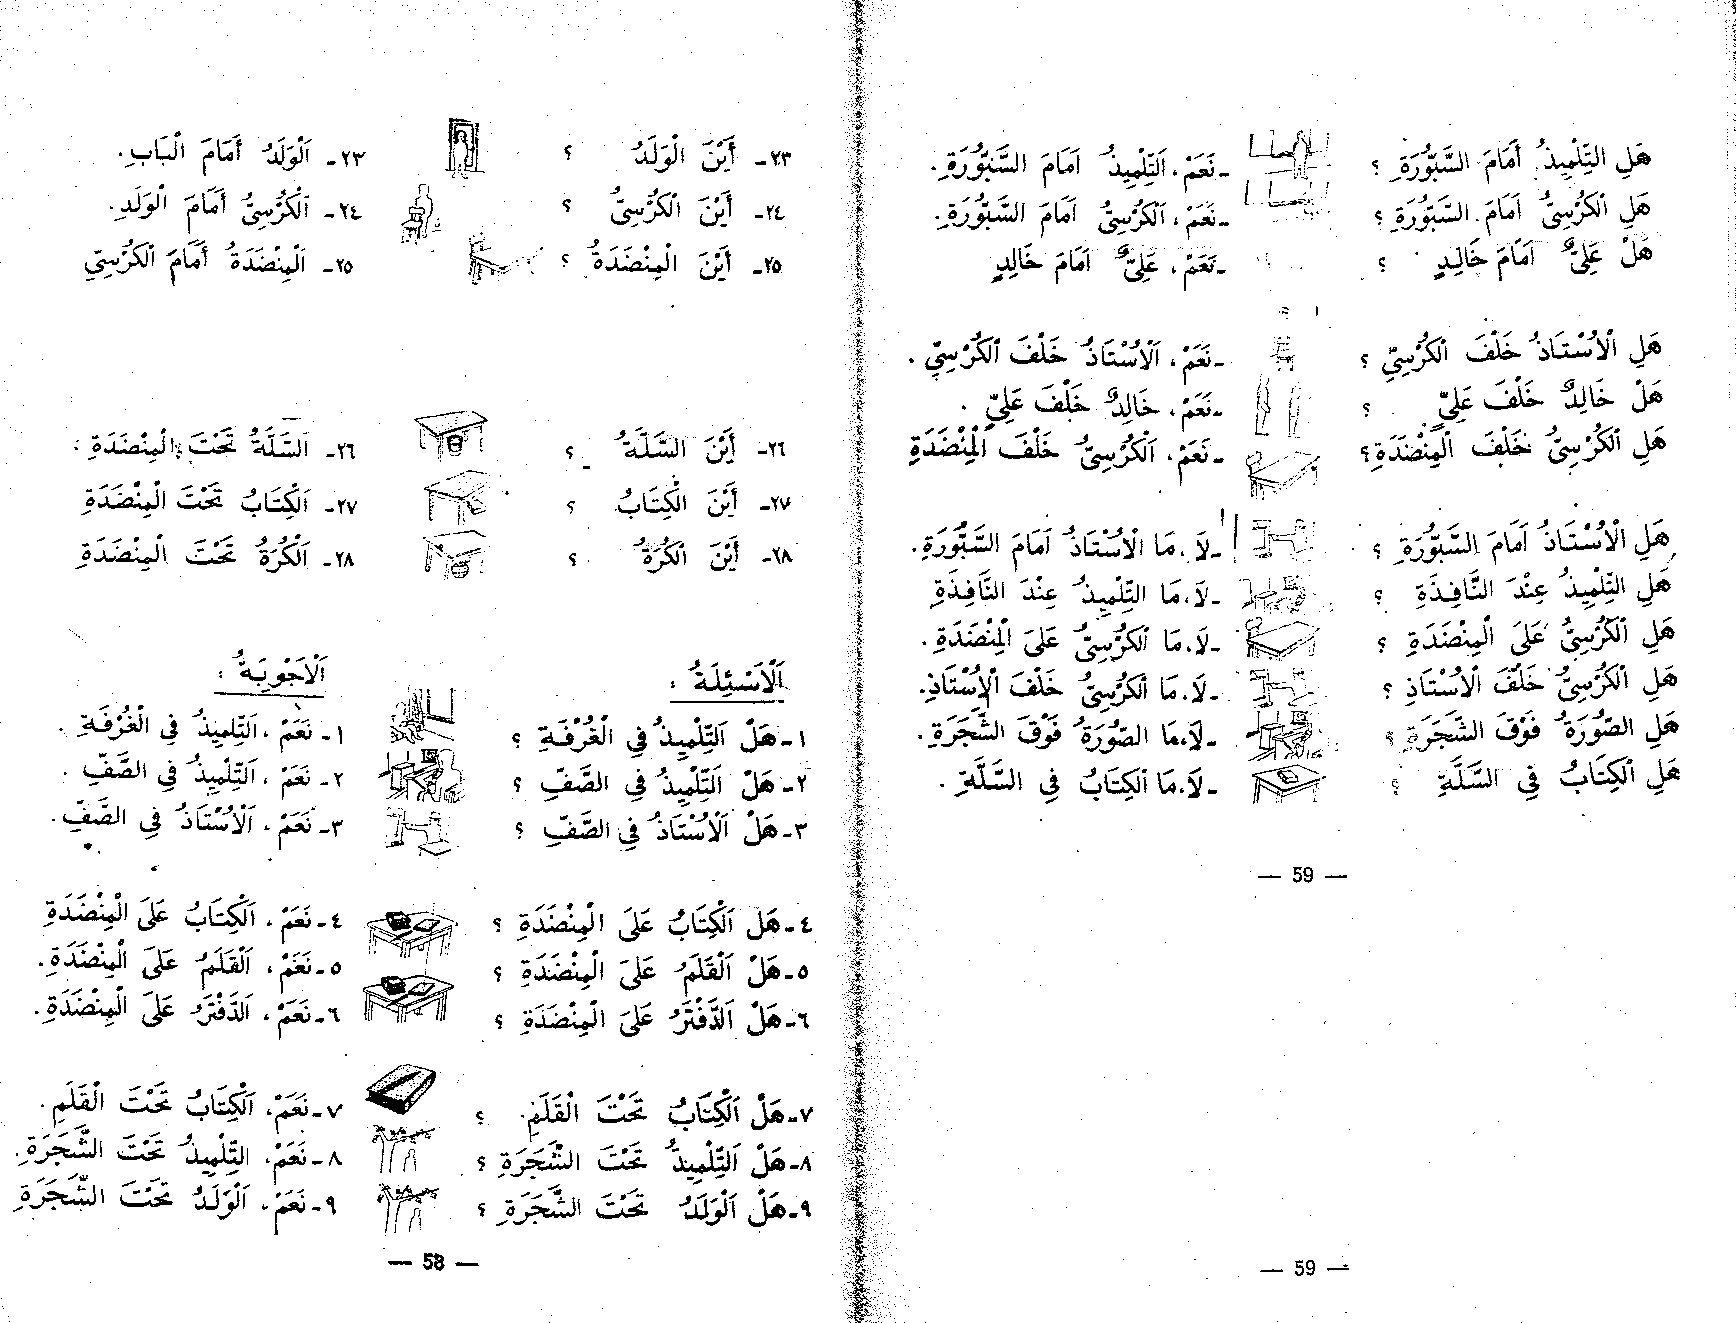 ٢٣- أَيْنَ الْوَلَدُ ؟ ٢٣- اَلْوَلَدُ أَمَامَ الْبَابِ.
٢٤- أَيْنَ الْكُرْسِيُّ ؟ ٢٤- اَلْكُرْسِيُّ أَمَامَ الْوَلَدِ.
٢٥- أَيْنَ الْمِنْضَدَةُ ؟ ٢٥- اَلْمِنْضَدَةُ أَمَامَ الْكُرْسِيِّ
٢٦- أَيْنَ السَّلَّةُ ؟ ٢٦- اَلسَّلَّةُ تَحْتَ الْمِنْضَدَةِ.
٢٧- أَيْنَ الْكِتَابُ ؟ ٢٧- اَلْكِتَابُ تَحْتَ الْمِنْضَدَةِ
٢٨- أَيْنَ الْكُرَةُ ؟ ٢٨- اَلْكُرَةُ تَحْتَ الْمِنْضَدَةِ
اَلْأَسْئِلَةُ : اَلْأَجْوِبَةُ :
١- هَلْ اَلتِّلْمِيذُ فِي الْغُرْفَةِ ؟ ١- نَعَمْ، اَلتِّلْمِيذُ فِي الْغُرْفَةِ.
٢- هَلْ اَلتِّلْمِيذُ فِي الصَّفِّ ؟ ٢- نَعَمْ، اَلتِّلْمِيذُ فِي الصَّفِّ.
٣- هَلْ اَلْأُسْتَاذُ فِي الصَّفِّ ؟ ٣- نَعَمْ، اَلْأُسْتَاذُ فِي الصَّفِّ.
٤- هَلْ اَلْكِتَابُ عَلَى الْمِنْضَدَةِ ؟ ٤- نَعَمْ، اَلْكِتَابُ عَلَى الْمِنْضَدَةِ
٥- هَلْ اَلْقَلَمُ عَلَى الْمِنْضَدَةِ ؟ ٥- نَعَمْ، اَلْقَلَمُ عَلَى الْمِنْضَدَةِ.
٦- هَلْ اَلدَّفْتَرُ عَلَى الْمِنْضَدَةِ ؟ ٦- نَعَمْ، اَلدَّفْتَرُ عَلَى الْمِنْضَدَةِ.
٧- هَلْ اَلْكِتَابُ تَحْتَ الْقَلَمِ ؟ ٧- نَعَمْ، اَلْكِتَابُ تَحْتَ الْقَلَمِ.
٨- هَلْ اَلتِّلْمِيذُ تَحْتَ الشَّجَرَةِ ؟ ٨- نَعَمْ، اَلتِّلْمِيذُ تَحْتَ الشَّجَرَةِ.
٩- هَلْ اَلْوَلَدُ تَحْتَ الشَّجَرَةِ ؟ ٩- نَعَمْ، اَلْوَلَدُ تَحْتَ الشَّجَرَةِ
— 58 —
هَلِ التِّلْمِيذُ أَمَامَ السَّبُّورَةِ ؟ -نَعَمْ، اَلتِّلْمِيذُ اَمَامَ السَّبُّورَةِ.
هَلِ الْكُرْسِيُّ اَمَامَ السَّبُّورَةِ ؟ -نَعَمْ، اَلْكُرْسِيُّ اَمَامَ السَّبُّورَةِ.
هَلْ عَلِيٌّ اَمَامَ خَالِدٍ ؟ -نَعَمْ، عَلِيٌّ اَمَامَ خَالِدٍ
هَلِ الْأُسْتَاذُ خَلْفَ الْكُرْسِيِّ ؟ -نَعَمْ، اَلْأُسْتَاذُ خَلْفَ الْكُرْسِيِّ.
هَلْ خَالِدٌ خَلْفَ عَلِيٍّ ؟ -نَعَمْ، خَالِدٌ خَلْفَ عَلِيٍّ.
هَلِ الْكُرْسِيُّ خَلْفَ الْمِنْضَدَةِ؟ -نَعَمْ، اَلْكُرْسِيُّ خَلْفَ الْمِنْضَدَةِ
هَلِ الْأُسْتَاذُ اَمَامَ السَّبُّورَةِ ؟ -لَا، مَا الْأُسْتَاذُ اَمَامَ السَّبُّورَةِ.
هَلِ التِّلْمِيذُ عِنْدَ النَّافِذَةِ ؟ -لَا، مَا التِّلْمِيذُ عِنْدَ النَّافِذَةِ
هَلِ الْكُرْسِيُّ عَلَى الْمِنْضَدَةِ ؟ -لَا، مَا الْكُرْسِيُّ عَلَى الْمِنْضَدَةِ.
هَلِ الْكُرْسِيُّ خَلْفَ الْأُسْتَاذِ ؟ -لَا، مَا الْكُرْسِيُّ خَلْفَ الْأُسْتَاذِ.
هَلِ الصُّورَةُ فَوْقَ الشَّجَرَةِ ؟ -لَا، مَا الصُّورَةُ فَوْقَ الشَّجَرَةِ.
هَلِ الْكِتَابُ فِي السَّلَّةِ ؟ -لَا، مَا الْكِتَابُ فِي السَّلَّةِ.
— 59 —
— 59 —